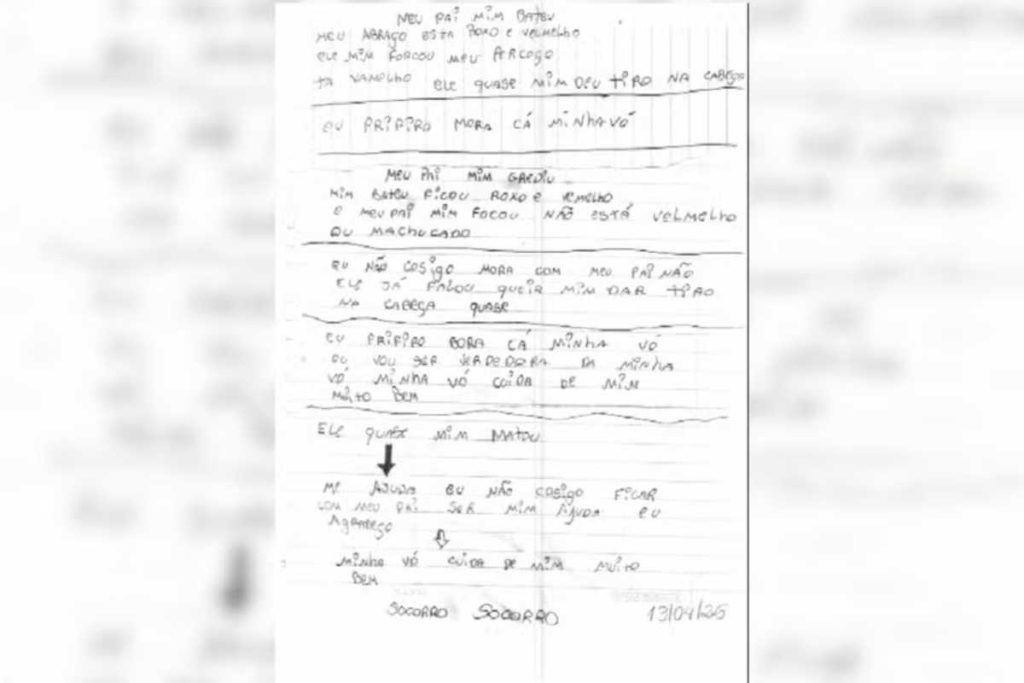 MEU PAI MIM BATEU
MEU ABRAÇO ESTA ROXO E VELMELHO
ELE MIM FORCOU MEU PERCOÇO
TA VAMELHO ELE QUASE MIM DEU TIRO NA CABEÇA
EU PRIFIRO MORA CÁ MINHA VÓ
MEU PAI MIM GARDIU
MIM BATEU FICOU ROXO E VEMELHO
E MEU PAI MIM FOCOU NÃO ESTÁ VELMELHO
OU MACHUCADO
EU NÃO COSIGO MORA COM MEU PAI NÃO
ELE JÁ FALOU QUEIR MIM DAR TIRO
NA CABEÇA QUASE
EU PRIFIRO BORA CÁ MINHA VÓ
EU VOU SER DA MINHA
VÓ MINHA VÓ CUIDA DE MIM
MUITO BEM
ELE QUASE MIM MATOU
ME AJUDA EU NÃO COSIGO FICAR
COM MEU PAI SER MIM AJUDA EU
AGARDEÇO
MINHA VÓ CUIDA DE MIM MUITO
BEM
SOCORRO SOCORRO 13/04/26